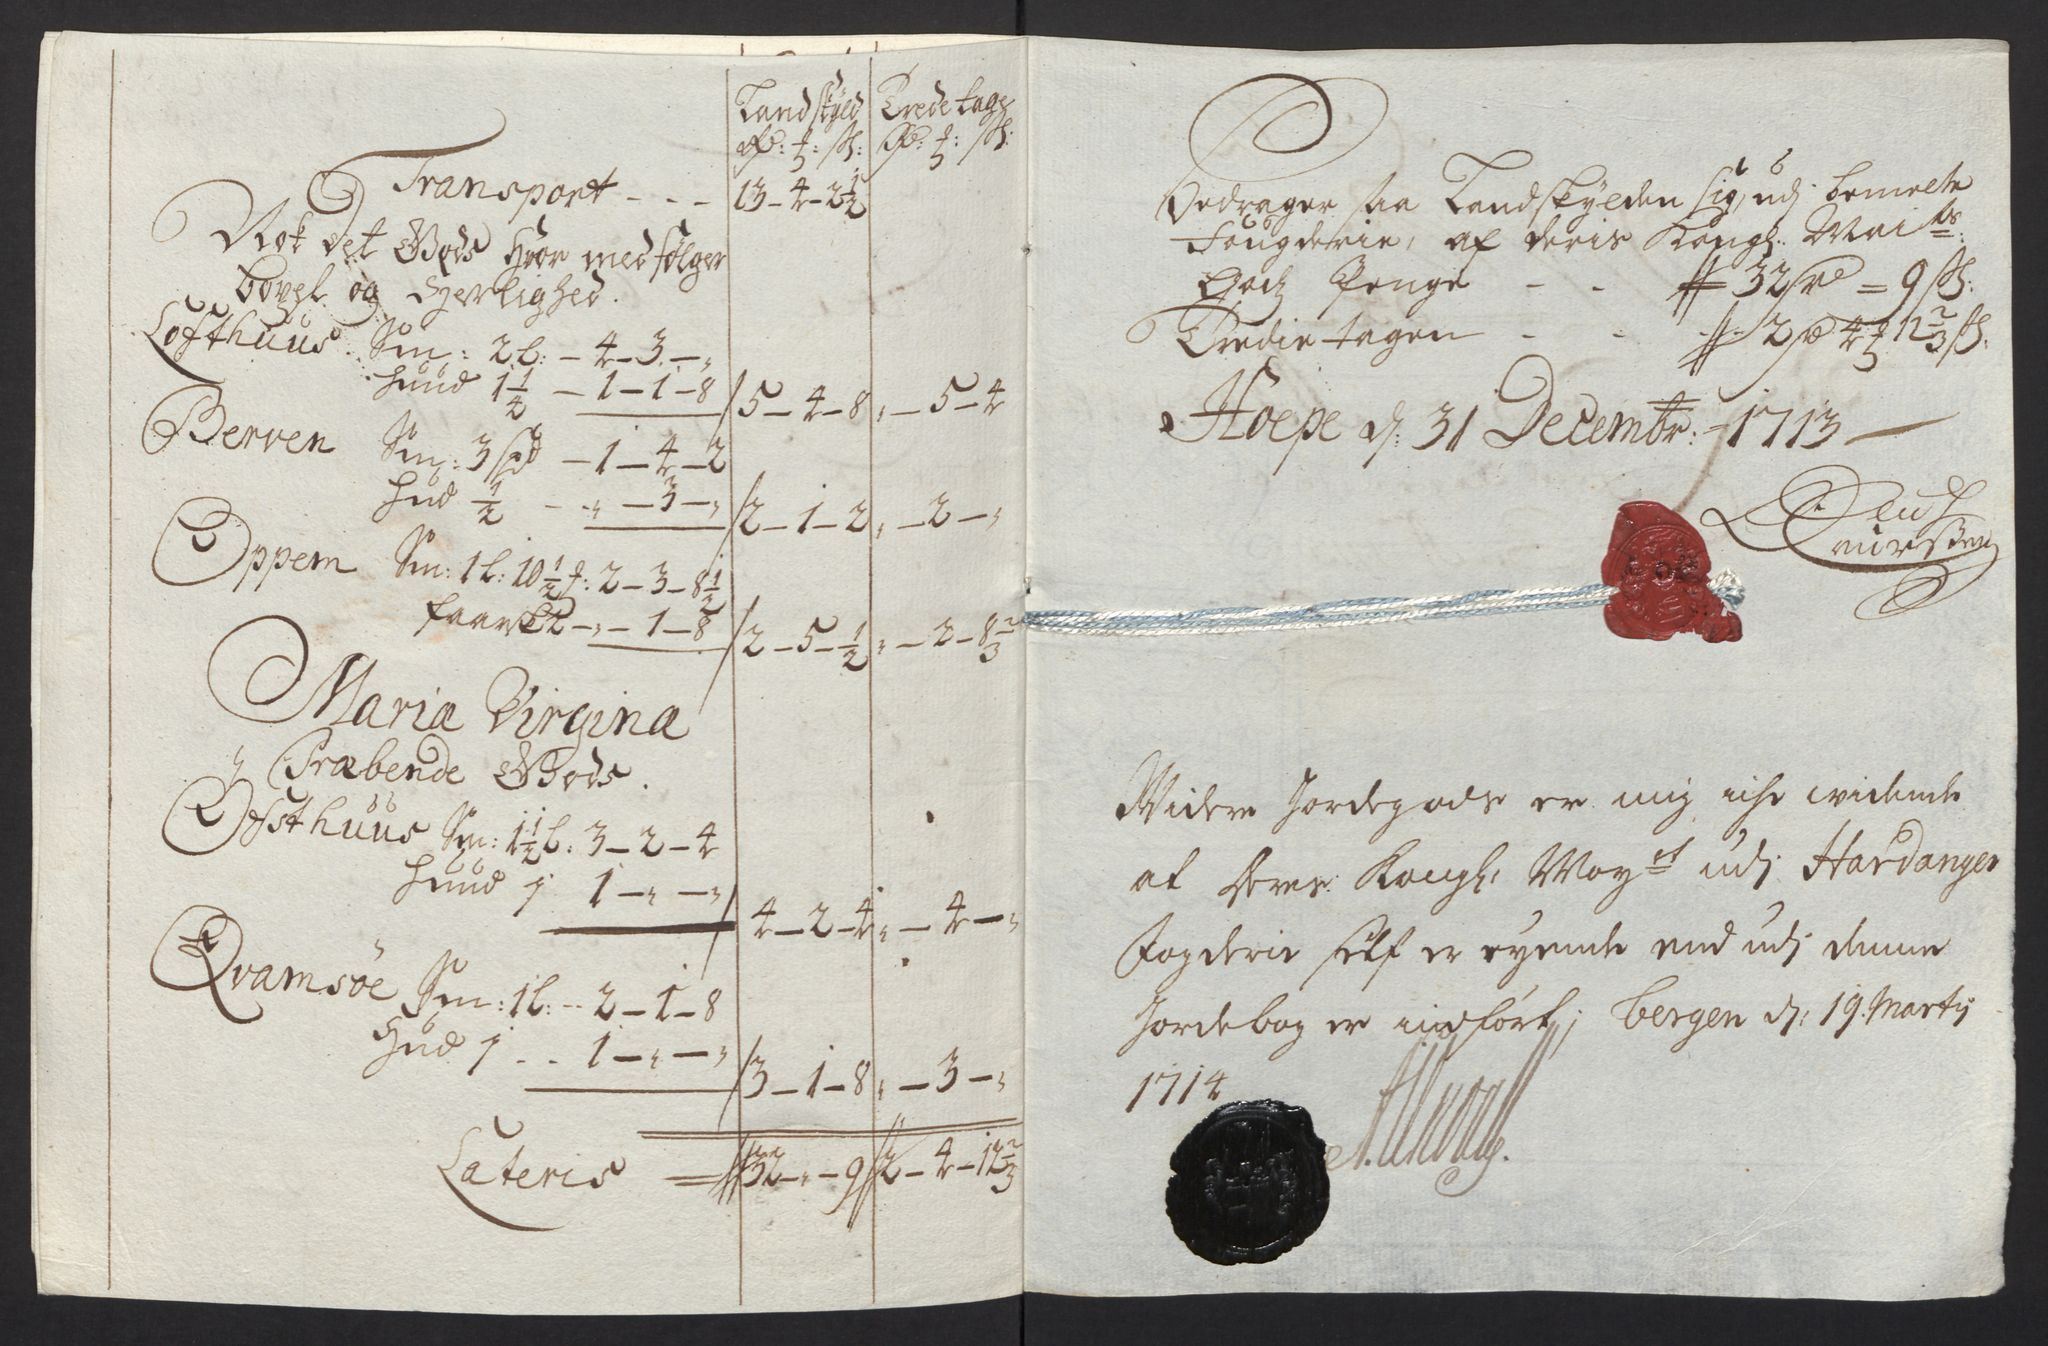 Landskÿld Trede tage
rd: ₰: ß: rd: ₰: ß:
Transport - - - 13 - 4 - 2½
Nok det Gods hvor medfølger
bøxel og Herlighed.
Lofthuus. Sm: 2 L: - 4 - 3 - „
huud 1¼ - 1 - 1 - 8 / 5 - 4 - 8 „ - 5 - 4
Berven Sm: 3 spd - 1 - 4 - 2
hud ½ - „ - 3 - „ / 2 - 1 - 2 „ - 2 - „
Oppem Sm: 1 L: 10½ ₰: 2 - 3 - 8½
faarsk: 2 - „ - 1 - 8 / 2 - 5 - ½ „ - 2 - 8⅔
Mariæ Virginæ
Præbende Gods.
Ofsthuus Sm: 1½ L: 3 - 2 - 4
huud j 1 - „ - „ 4 - 2 - 4 „ - 4 - „
Qvamsøe Sm: 1 L: - 2 - 1 - 8
Hud j - - 1 - „ - „ / 3 - 1 - 8 „ - 3 - „
Lateris = 32 - „ - 9 2 - 4 - 12⅔
Bedrager saa Landskÿlden sig, udj bemelte
Fougderie, af deris Kongl: Maits:
Gods Penge - - 32 rd = 9 ß:
Tredie tagen - - 2 rd 4 ₰ 12⅔ ß:
Hoepe d: 31 Decembr: - 1713 -
Widere Jordegods er mig iche widende
at Deres Kongl: Mayst udj Hardanger
Fogderie self er eyende end udj denne
Jordebog er indført; bergen d: 19. Martij
1714